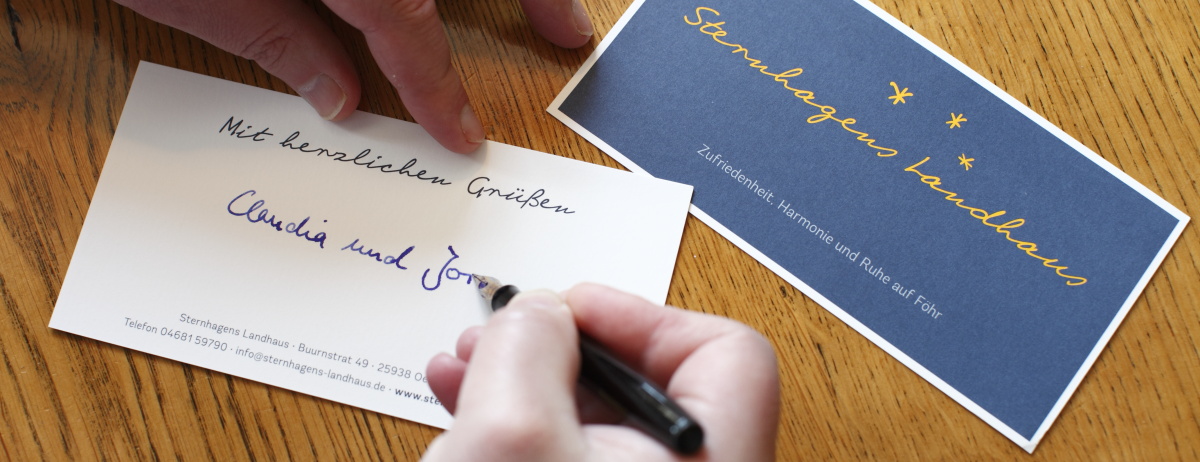 Mit herzlichen Grüßen
Claudia und
Sternhagens Landhaus · Buurnstrat 49 · 25938
Telefon 04681 59790 · info@sternhagens-landhaus.de ·
Sternhagens Landhaus
Zufriedenheit, Harmonie und Ruhe auf Föhr